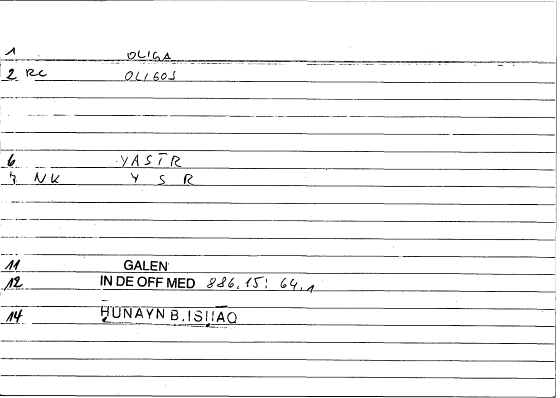 1 OLIGA
2 RC OLIGOS
6 YASĪR
7 NK Y S R
11 GALEN
12 IN DE OFF MED 886.15: 64.1
14 ḤUNAYN B. ISḤĀQ